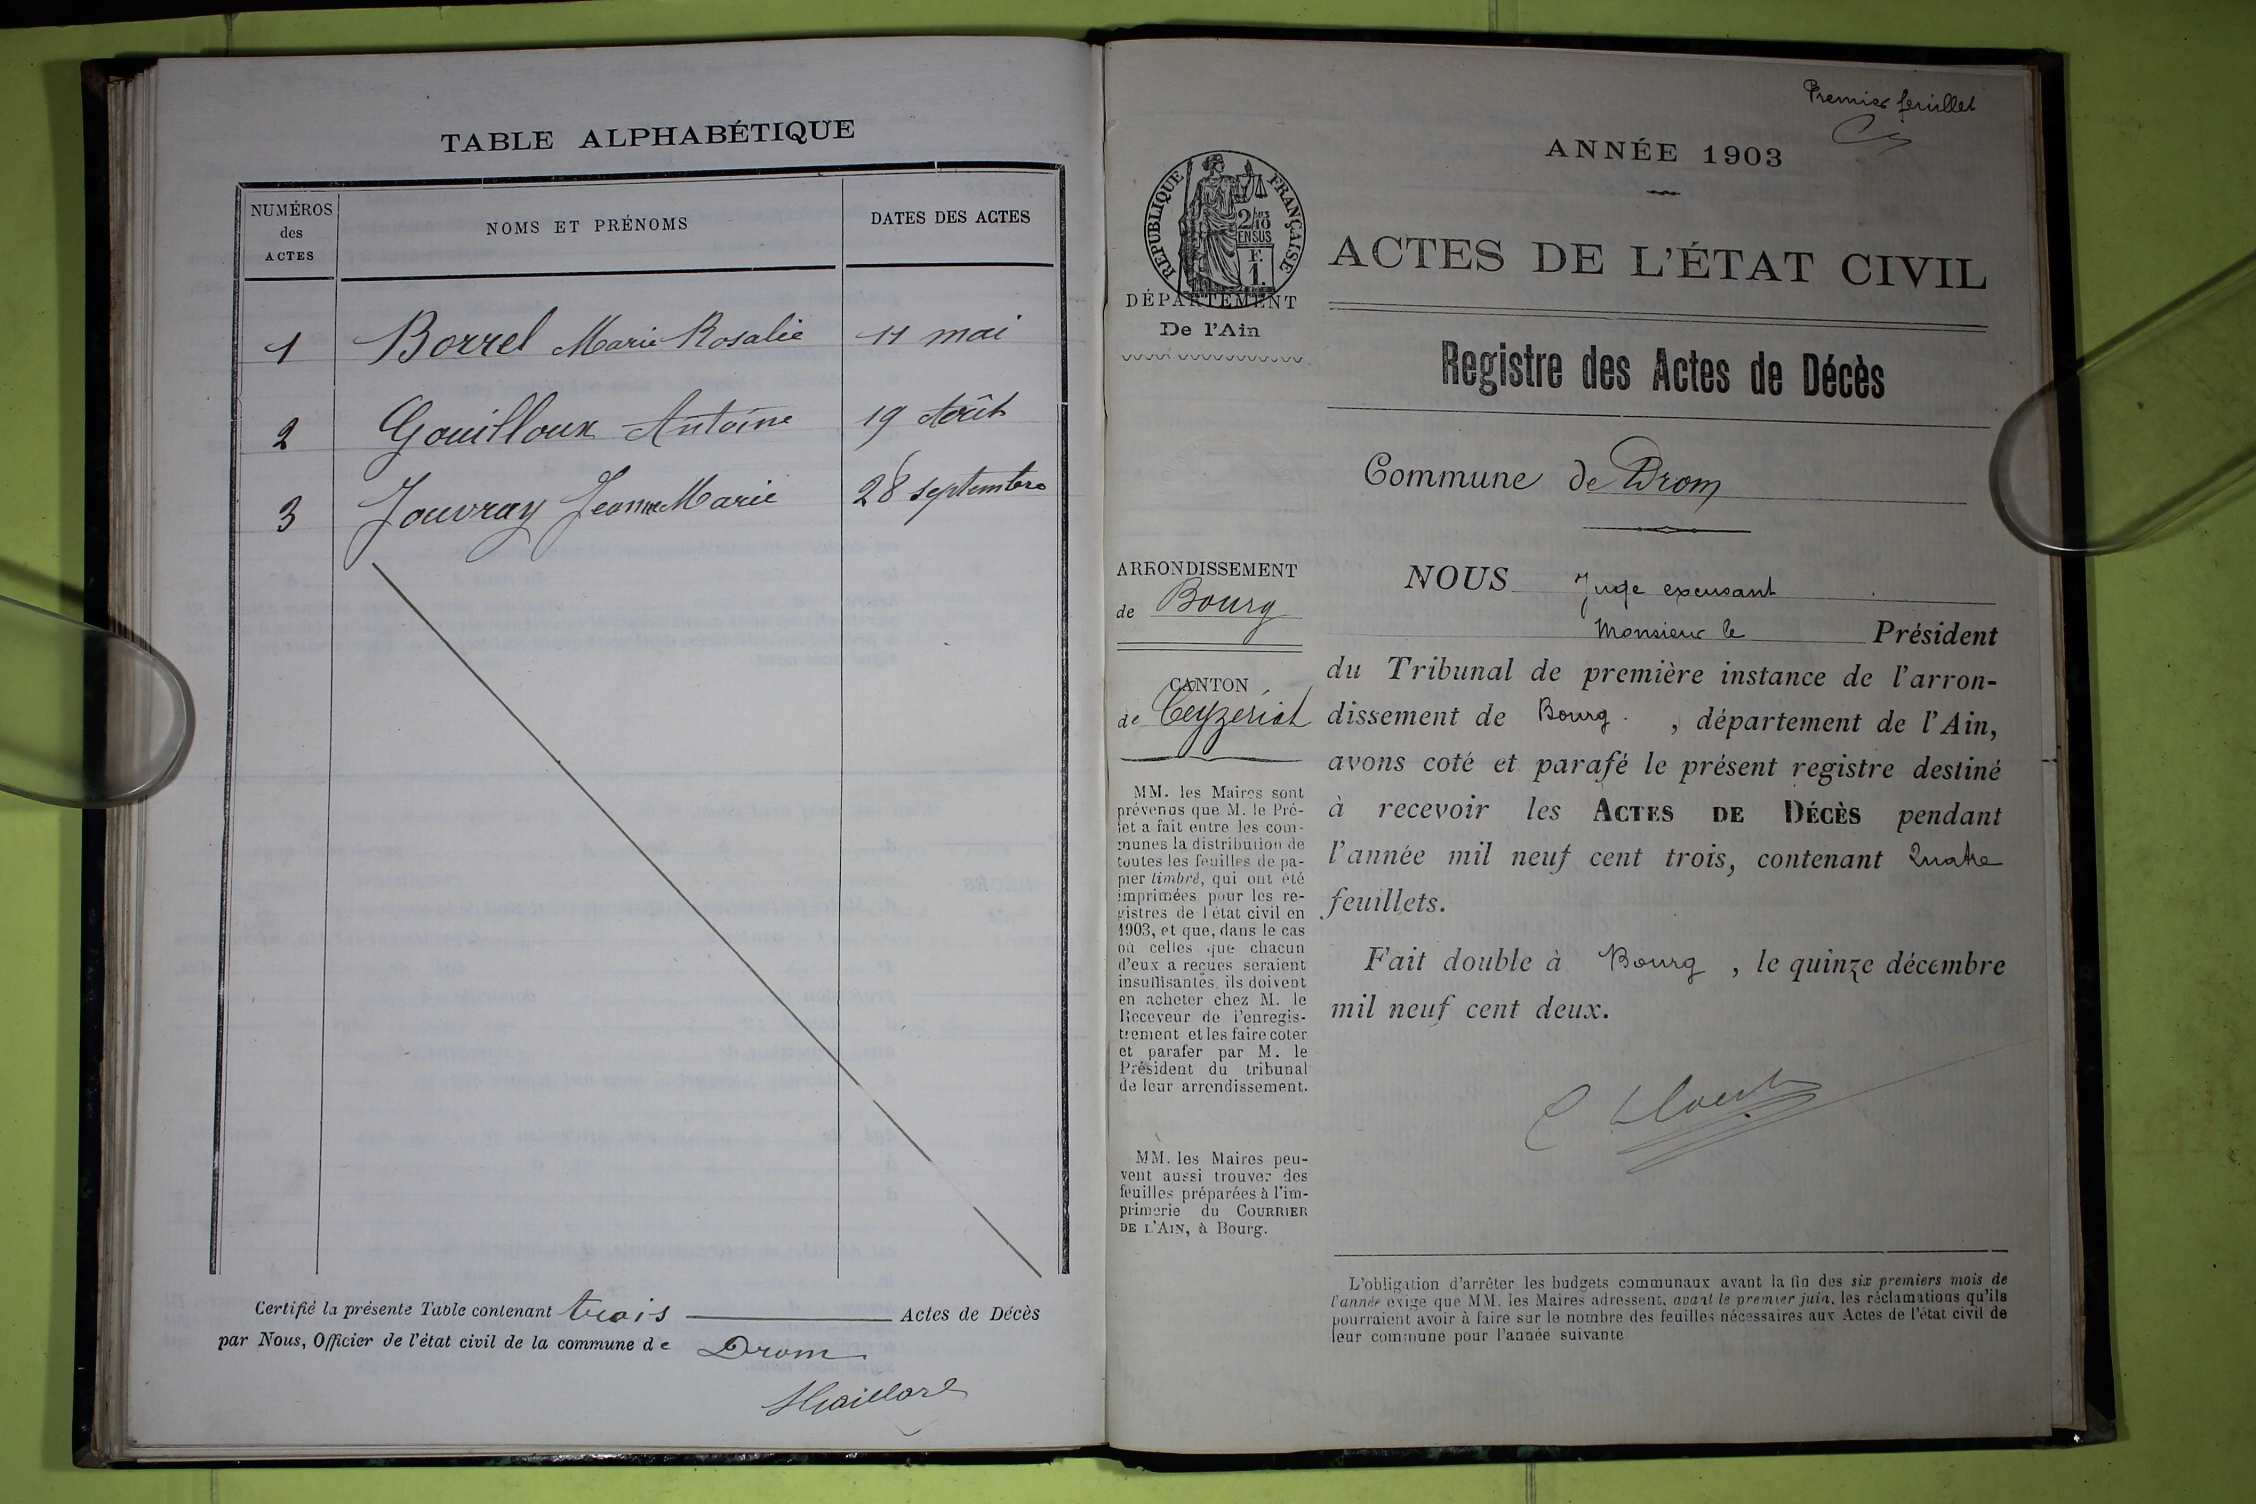 TABLE ALPHABÉTIQUE
NUMÉROS
des
ACTES
NOMS ET PRÉNOMS
DATES DES ACTES
1 Borrel Marie Rosalie 11 mai
2 Gouilloux Antoine 19 Août
3 Jouvray Jeanne Marie 28 septembre
Certifié la présente Table contenant trois Actes de Décès
par Nous, Officier de l'état civil de la commune de Drom
Premier feuillet
ANNÉE 1903
RÉPUBLIQUE FRANÇAISE
2/10
EN SUS
F.
1.
DÉPARTEMENT
De l'Ain
ACTES DE L'ÉTAT CIVIL
Registre des Actes de Décès
Commune de Drom
ARRONDISSEMENT
de Bourg
CANTON
de Ceyzériat
MM. les Maires sont
prévenus que M. le Pré-
fet a fait entre les com-
munes la distribution de
toutes les feuilles de pa-
pier timbré, qui ont été
imprimées pour les re-
gistres de l'état civil en
1903, et que, dans le cas
où celles que chacun
d'eux a reçues seraient
insuffisantes, ils doivent
en acheter chez M. le
Receveur de l'enregis-
trement et les faire coter
et parafer par M. le
Président du tribunal
de leur arrondissement.
MM. les Maires peu-
vent aussi trouver des
feuilles préparées à l'im-
primerie du COURRIER
DE L'AIN, à Bourg.
NOUS Juge excusant
Monsieur le Président
du Tribunal de première instance de l'arron-
dissement de Bourg. , département de l'Ain,
avons coté et parafé le présent registre destiné
à recevoir les ACTES DE DÉCÈS pendant
l'année mil neuf cent trois, contenant Quatre
feuillets.
Fait double à Bourg , le quinze décembre
mil neuf cent deux.
L'obligation d'arrêter les budgets communaux avant la fin des six premiers mois de
l'année exige que MM. les Maires adressent, avant le premier juin, les réclamations qu'ils
pourraient avoir à faire sur le nombre des feuilles nécessaires aux Actes de l'état civil de
leur commune pour l'année suivante